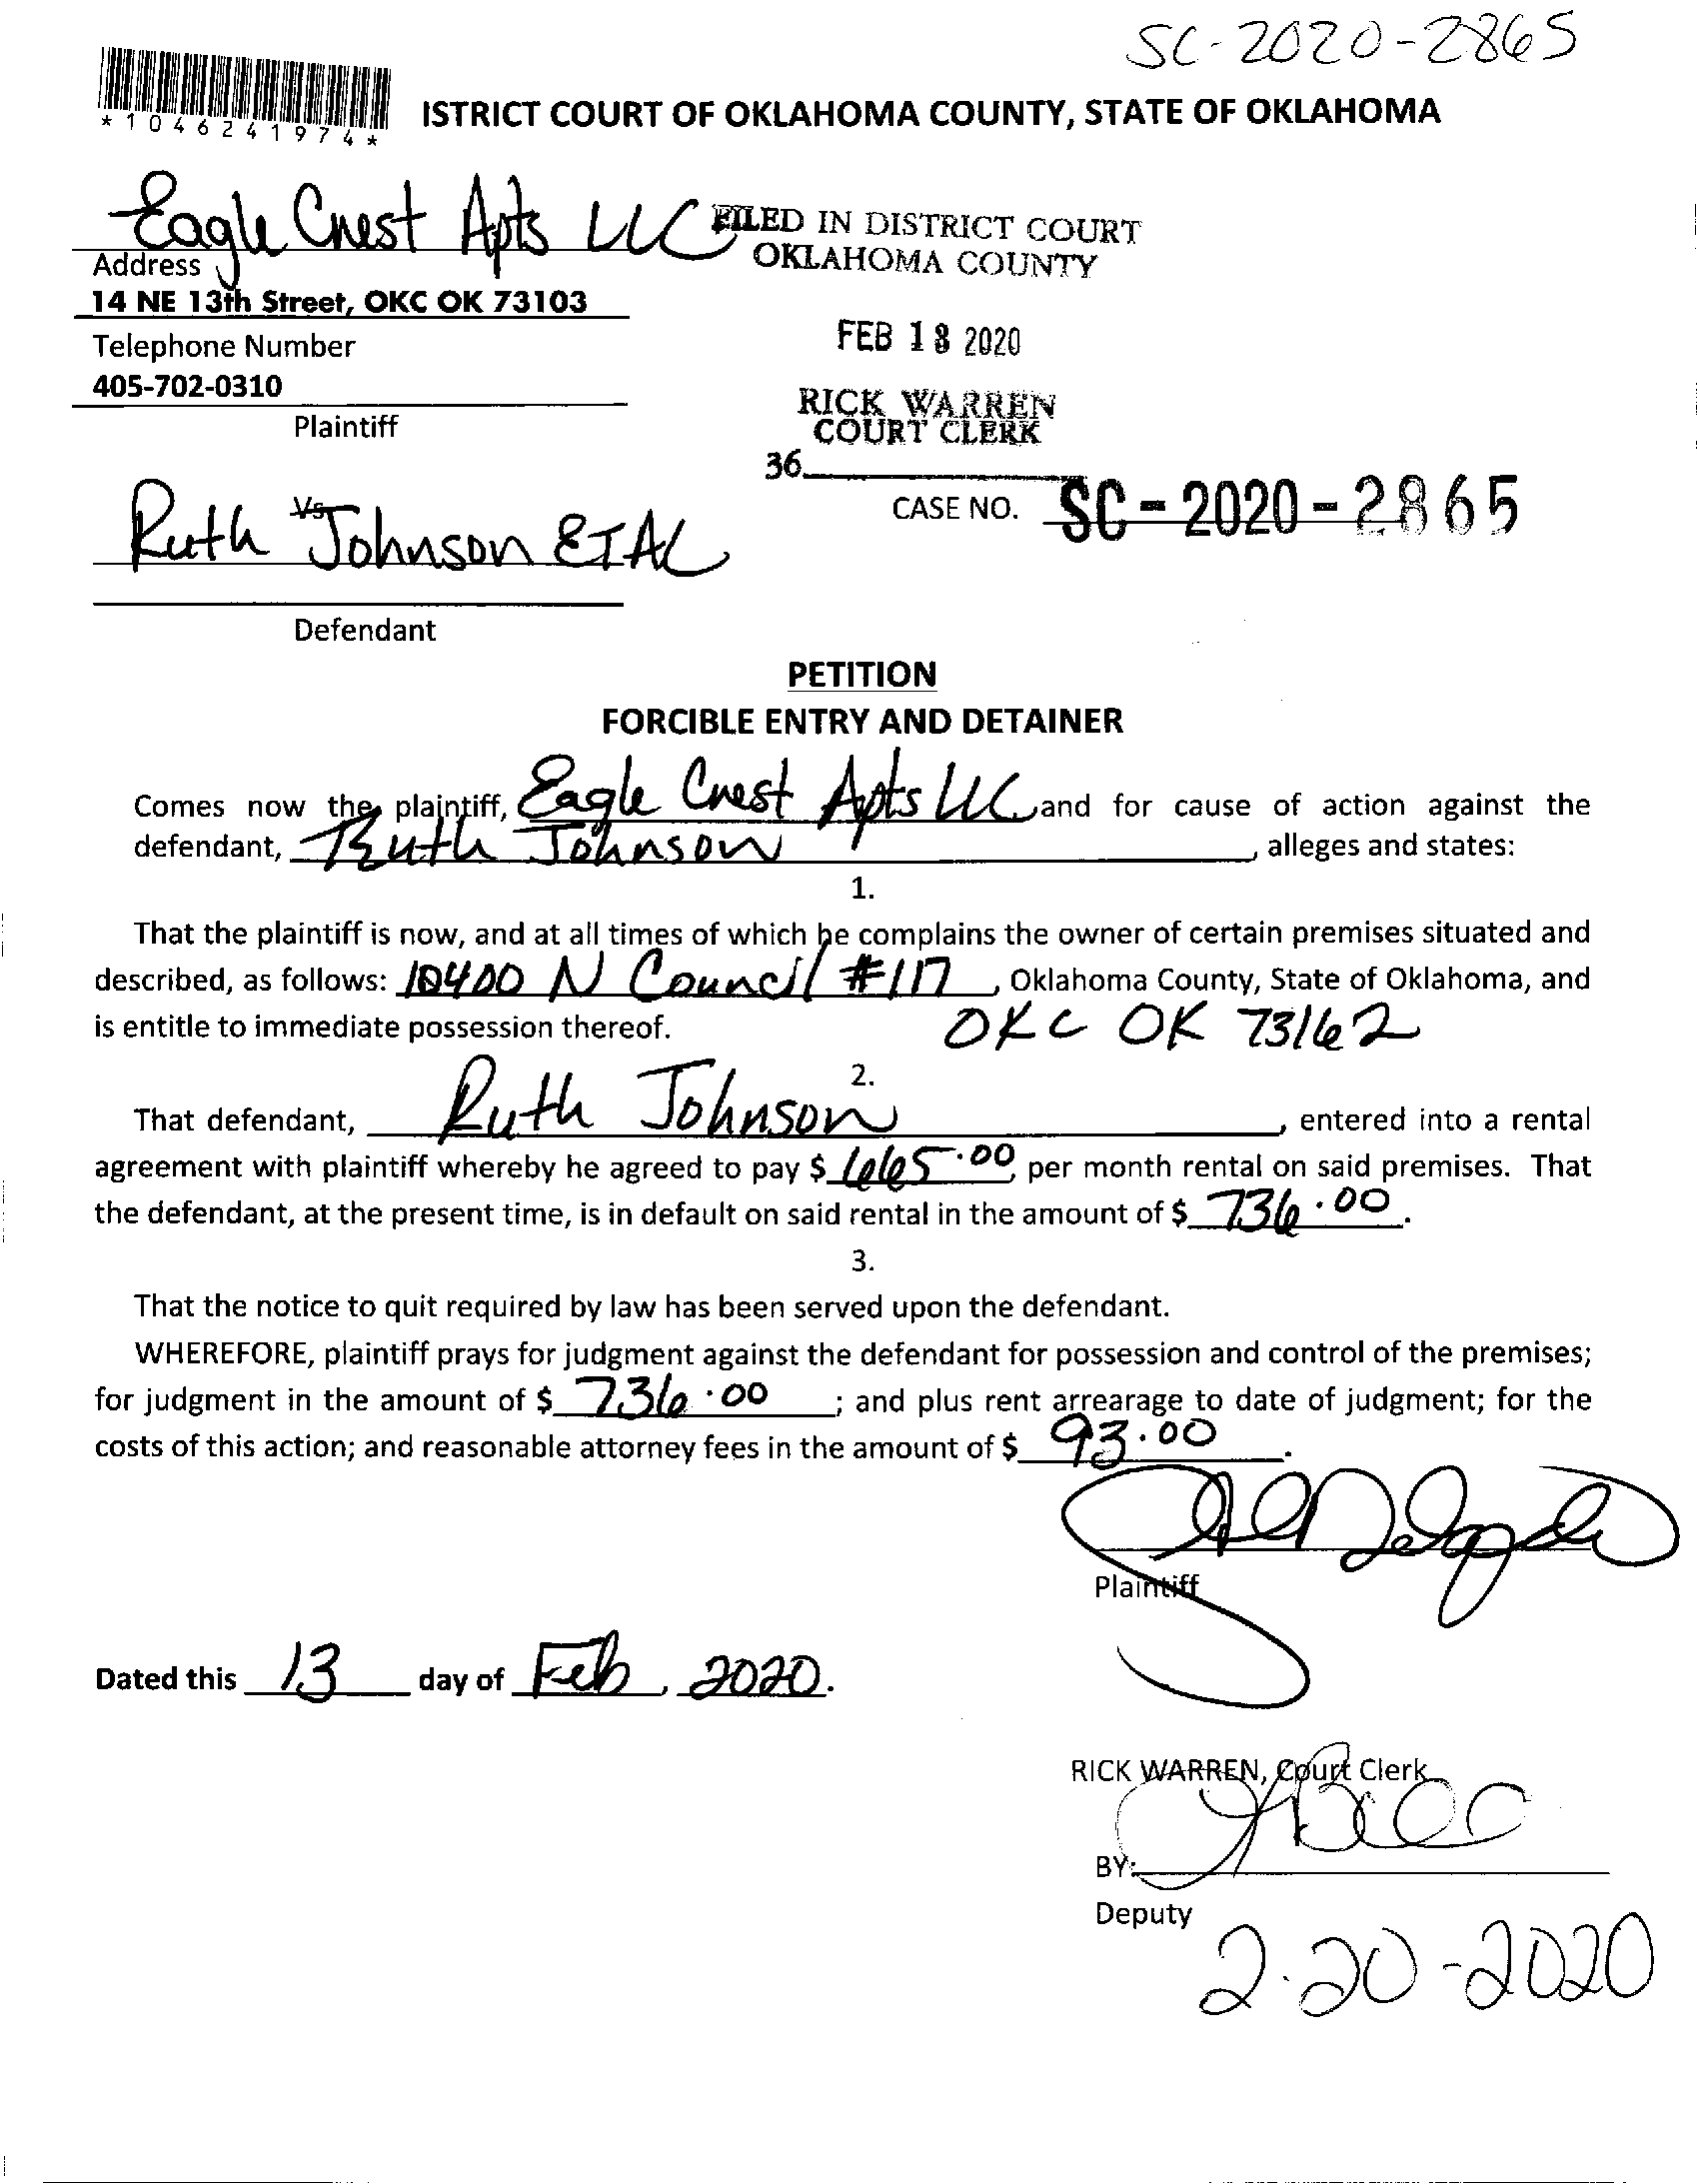 SC-2020-2865
*1046241974*
ISTRICT COURT OF OKLAHOMA COUNTY, STATE OF OKLAHOMA
Eagle Crest Apts LLC
FILED IN DISTRICT COURT
OKLAHOMA COUNTY
Address
14 NE 13th Street, OKC OK 73103
Telephone Number
FEB 18 2020
405-702-0310
RICK WARREN
COURT CLERK
Plaintiff
36
Vs
CASE NO. SC-2020-2865
Ruth Johnson ETAL
Defendant
PETITION
FORCIBLE ENTRY AND DETAINER
Comes now the plaintiff, Eagle Crest Apts LLC and for cause of action against the
defendant, Ruth Johnson, alleges and states:
1.
That the plaintiff is now, and at all times of which he complains the owner of certain premises situated and
described, as follows: 10400 N Council #117, Oklahoma County, State of Oklahoma, and
is entitle to immediate possession thereof. OKC OK 73162
2.
That defendant, Ruth Johnson, entered into a rental
agreement with plaintiff whereby he agreed to pay $ 665.00, per month rental on said premises. That
the defendant, at the present time, is in default on said rental in the amount of $ 736.00.
3.
That the notice to quit required by law has been served upon the defendant.
WHEREFORE, plaintiff prays for judgment against the defendant for possession and control of the premises;
for judgment in the amount of $ 736.00; and plus rent arrearage to date of judgment; for the
costs of this action; and reasonable attorney fees in the amount of $ 93.00.
Plaintiff
Dated this 13 day of Feb, 2020.
RICK WARREN, Court Clerk
BY:
Deputy
2-20-2020